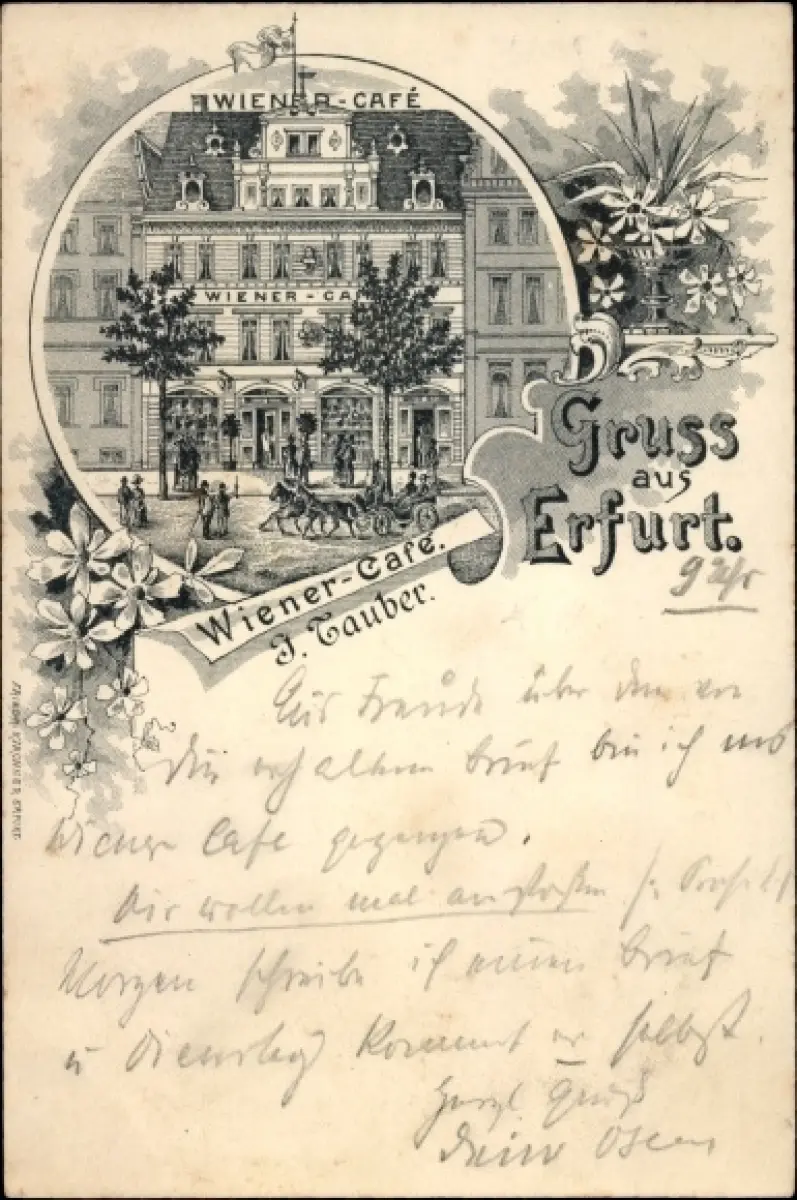 WIENER-CAFÉ
WIENER-CA
Gruss
aus
Erfurt.
Wiener-Café.
J. Tauber.
9 Uhr
Aus Freude über den von
Dir erhaltenen Brief bin ich ins
Wiener Cafe gegangen.
Wir wollen mal anstoßen Prosit
Morgen schreibe ich einen Brief
u Dienstag kommt er selbst.
Herzl Gruß
Dein Oscar